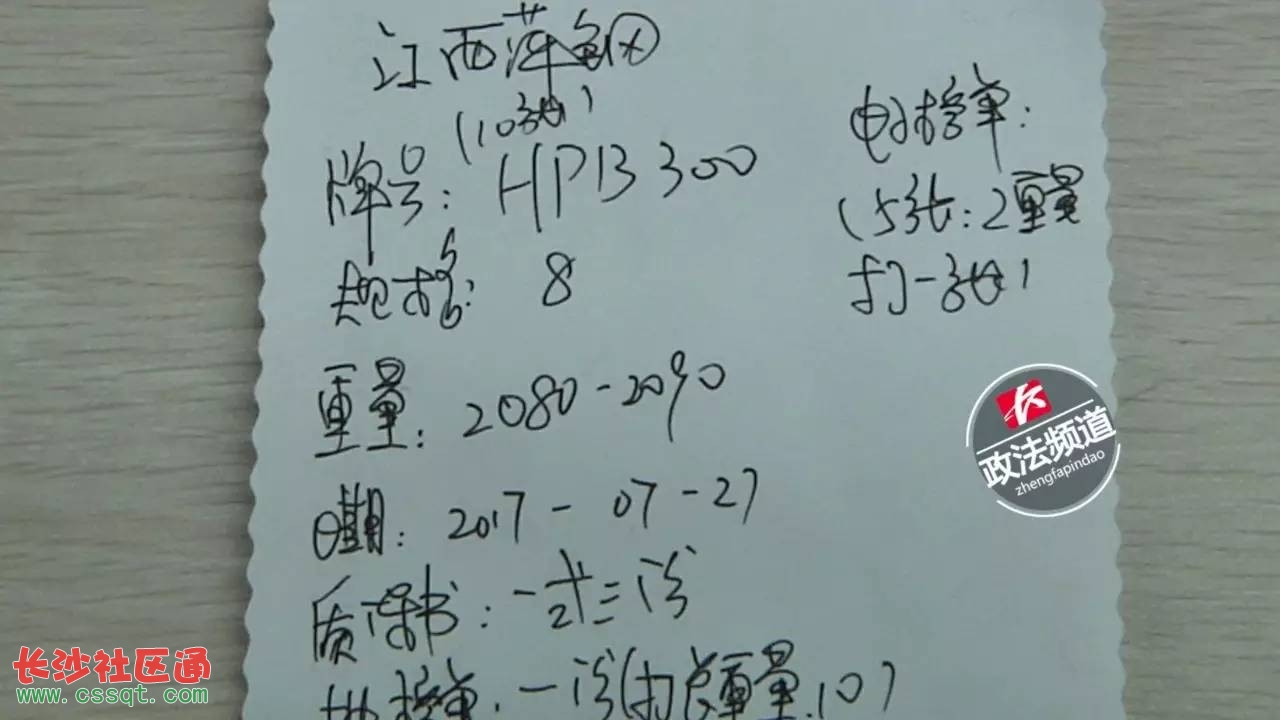 江西萍钢
(10张)
牌号: HPB300
规格: 8
重量: 2080-2090
日期: 2017-07-27
质保书: 一式三份
磅单: 一份(打总重量, 10)
电子榜单:
(5张: 2重量
打一张)
政法频道
zhengfapindao
长沙社区通
www.cssqt.com